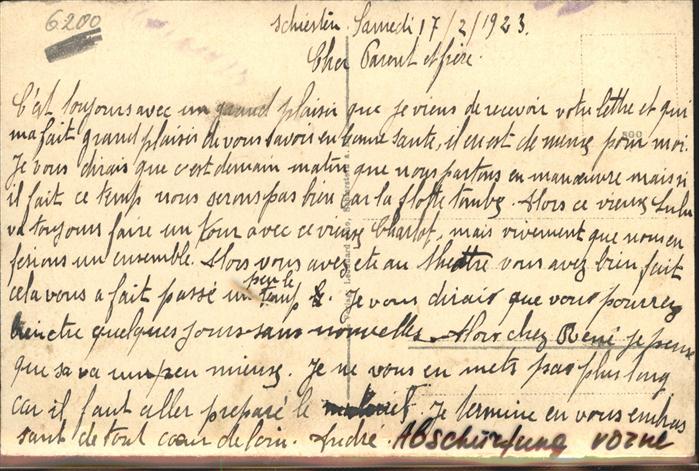 6.200
Schierstein Samedi 17/2/1923.
Cher Parent et frère.
C'est toujours avec un grand plaisir que je viens de recevoir votre lettre et qui
ma fait grand plaisir de vous savoir en bonne santé, il en est de même pour moi.
Je vous dirais que c'est demain matin que nous partons en manœuvre mais si
il fait ce temp nous serons pas bien car la flotte tombe. Alors ce vieux Lulu
va toujours faire un tour avec ce vieux Charlot, mais vivement que nous en
ferions un ensemble. Alors vous avez ete au theatre vous avez bien fait
cela vous a fait passé un peu le temp. Je vous dirais que vous pourrez
quelques jours sans nouvelles. Alors chez René je pense
que sa va un peu mieux. Je ne vous en mets pas plus long
car il faut aller preparé le. Je termine en vous embras
sant de tout cœur de loin. André. Abschürfung vorne